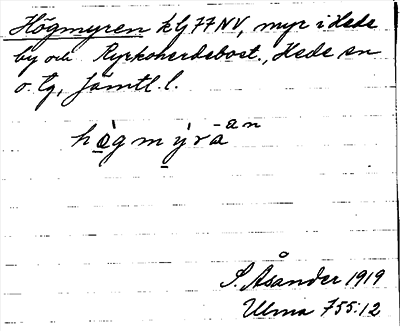 Högmyren klj 77 NV, myr i Hede
by och Kyrkoherdebost., Hede sn
o. tg, Jämtl. l.
hògmýrā an
S. Åsander 1919
Ulma 755:12